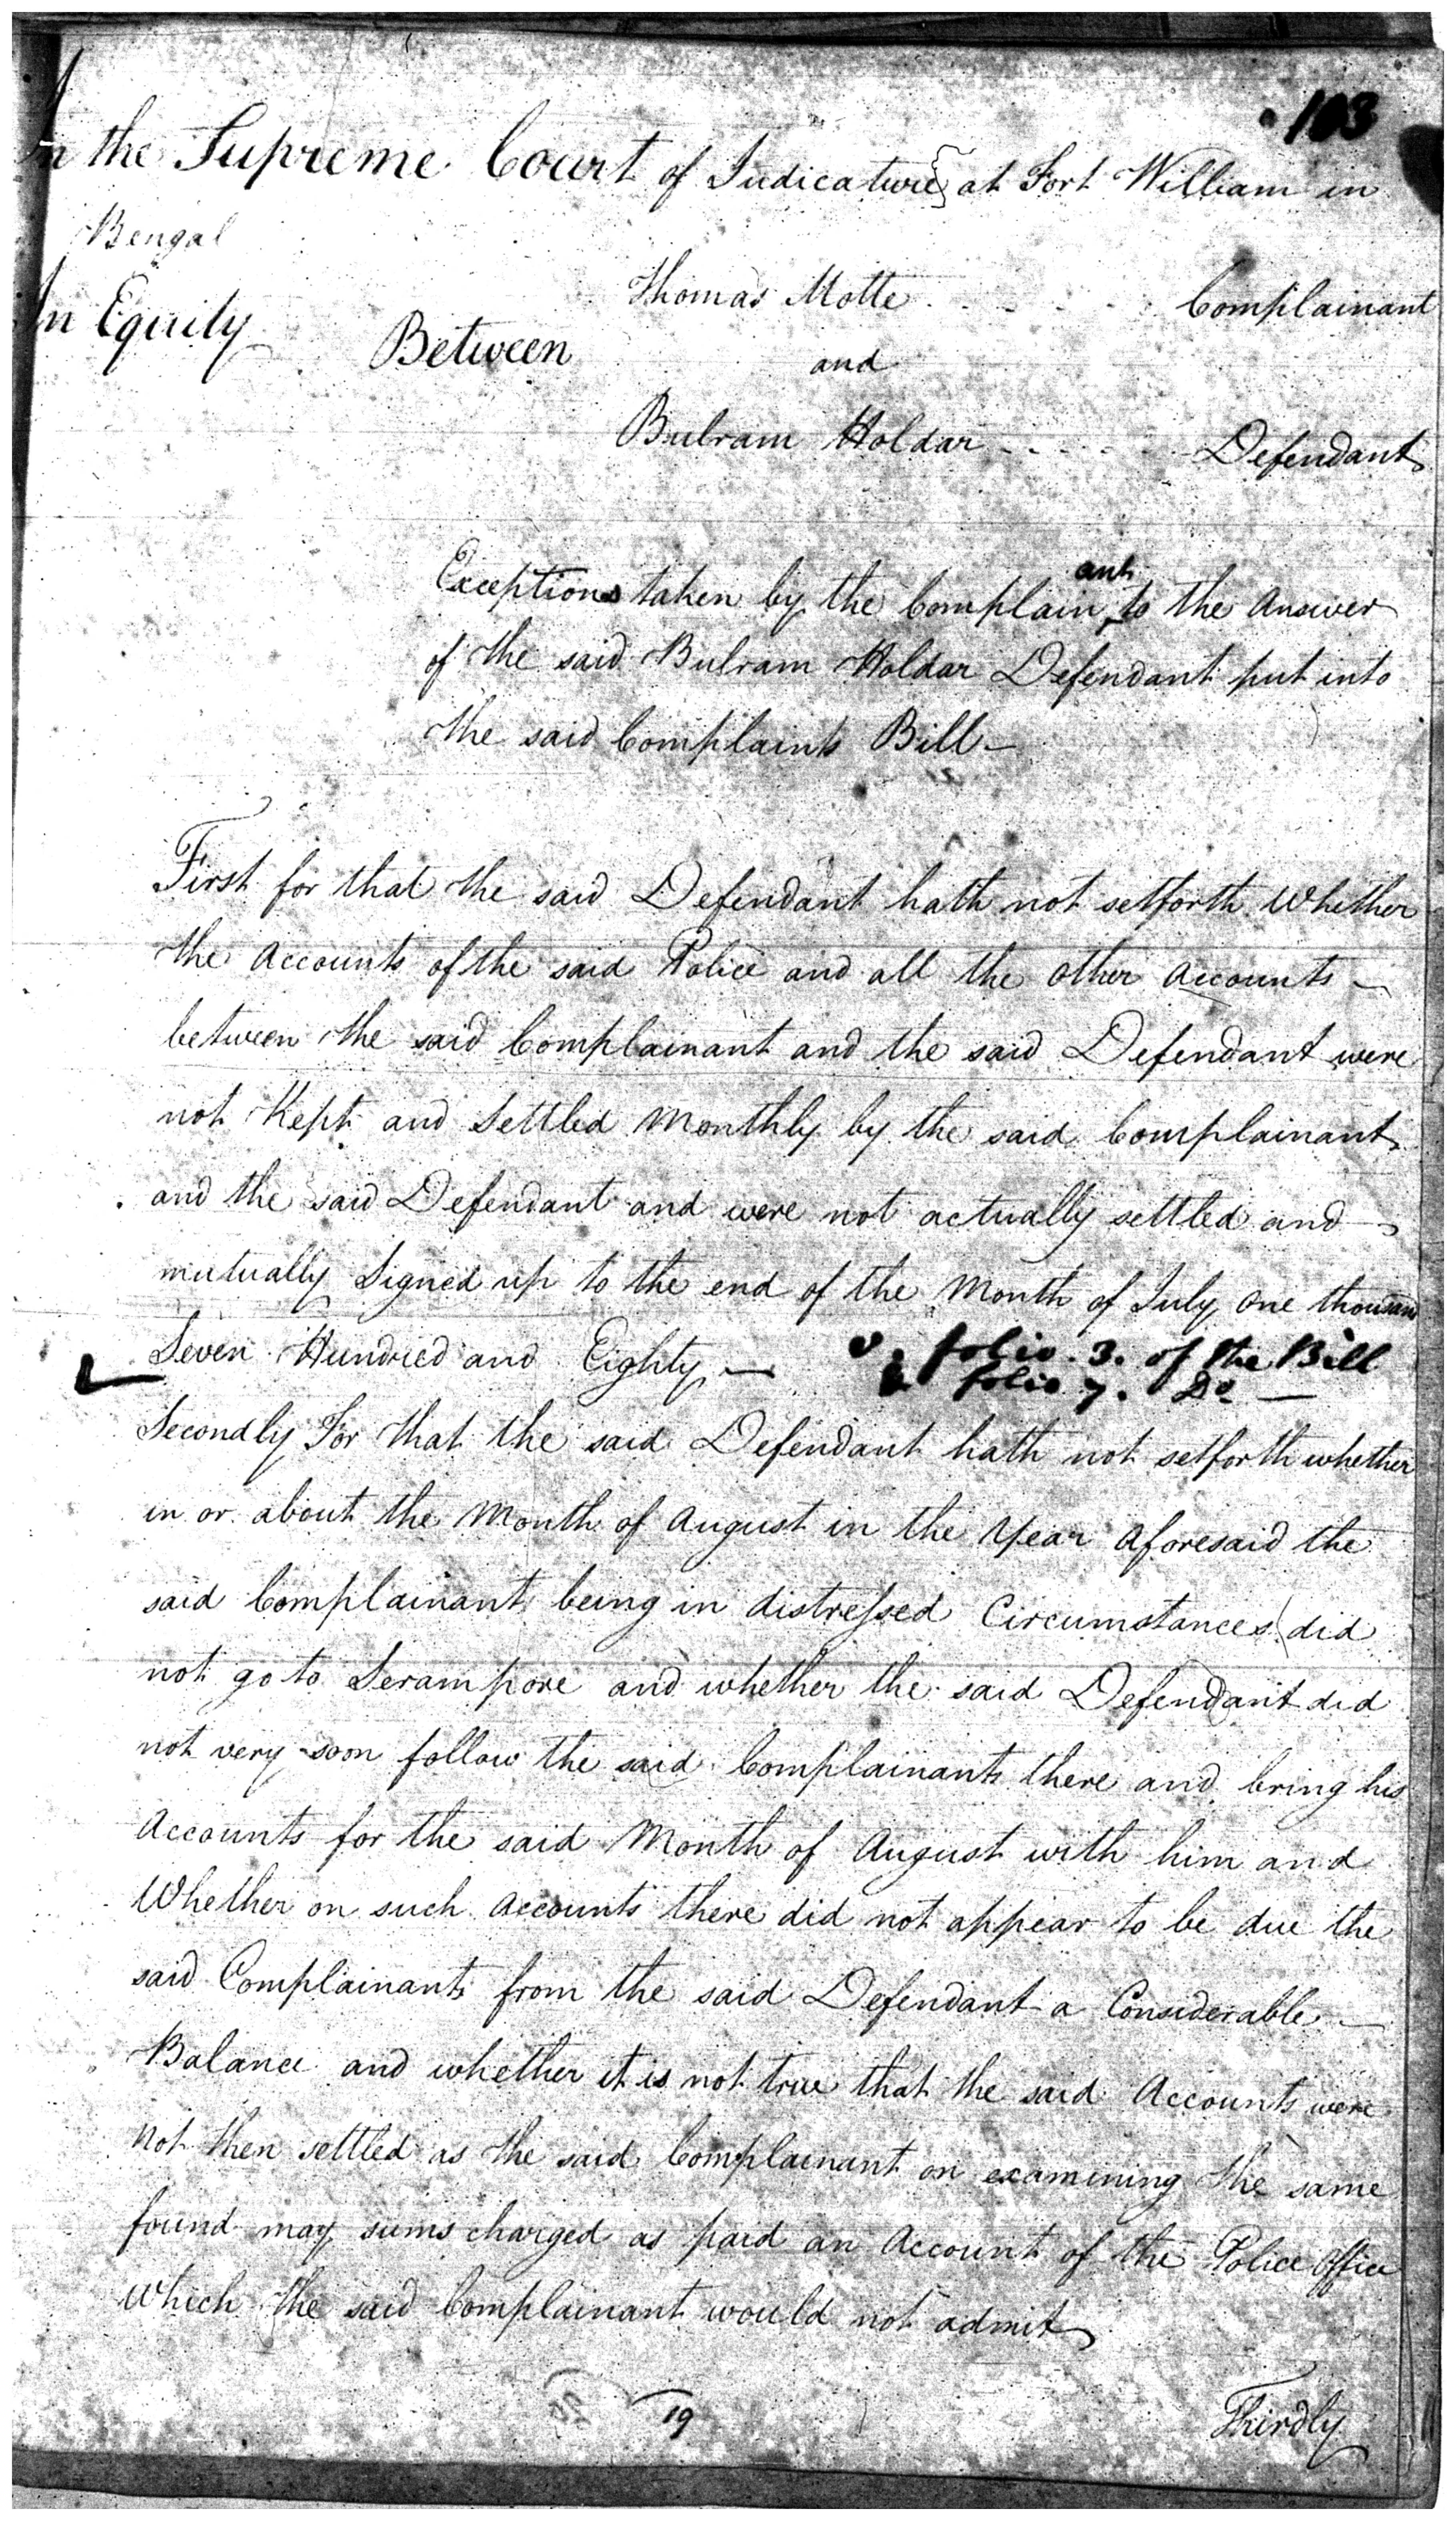 103
In the Supreme Court of Judicature at Fort William in
Bengal
In Equity
Thomas Motte Complainant
Between and
Bulram Holdar Defendant
Exceptions taken by the Complainant to the Answer
of the said Bulram Holdar Defendant put into
the said Complaints Bill
First for that the said Defendant hath not setforth Whether
the Accounts of the said Police and all the other accounts
between the said Complainant and the said Defendant were
not Kept and Settled Monthly by the said Complainant
and the said Defendant and were not actually settled and
mutually Signed up to the end of the Month of July One thousand
Seven Hundred and Eighty — v. folio. 3. of the Bill
& folio 7. Do —
Secondly For that the said Defendant hath not setforth whether
in or about the Month of August in the Year aforesaid the
said Complainant being in distressed Circumstances did
not go to Serampore and whether the said Defendant did
not very soon follow the said Complainants there and bring his
Accounts for the said Month of August with him and
Whether on such accounts there did not appear to be due the
said Complainants from the said Defendant a Considerable
Balance and whether it is not true that the said Accounts were
not then settled as the said Complainant on examining the same
found may sums charged as paid an Account of the Police Office
which the said Complainant would not admit
19
Thirdly